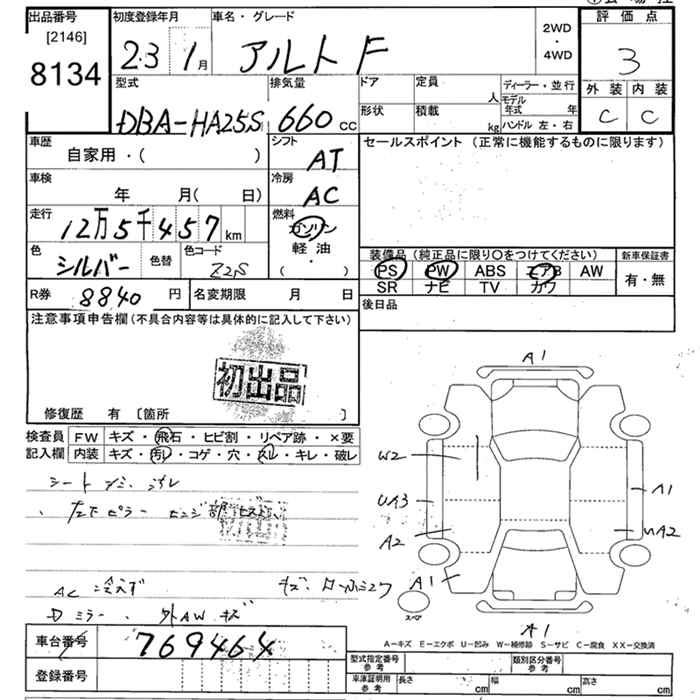 出品番号
[2146]
8134
初度登録年月
23 1月
車名・グレード
アルト F
2WD
・
4WD
評価点
3
外装 内装
C C
型式
DBA-HA25S
排気量
660 CC
ドア
形状
定員
人
積載
kg
ディーラー・並行
モデル年式 年
ハンドル 左・右
車歴
自家用・( )
シフト
AT
セールスポイント (正常に機能するものに限ります)
車検
年 月( 日)
冷房
AC
走行
12万5千457 km
燃料
ガソリン
軽・油
( )
色
シルバー
色替
色コード
Z2S
装備品 (純正品に限り〇をつけてください)
新車保証書
PS PW ABS エアB AW
SR ナビ TV カワ
有・無
R券 8840 円
名変期限 月 日
後日品
注意事項申告欄(不具合内容等は具体的に記入して下さい)
初出品
修復歴 有 [箇所 ]
検査員
記入欄
FW キズ・飛石・ヒビ割・リペア跡・×要
内装 キズ・汚れ・コゲ・穴・スレ・キレ・破レ
左下ピラー ヒンジ部
AC 冷えず
Dミラー、外AW キズ
A1
W2
UA3
A2
A1
A1
UA2
A1
スペア
A=キズ E=エクボ U=凹み W=補修跡 S=サビ C=腐食 XX=交換済
車台番号
769464
登録番号
型式指定番号
参考
類別区分番号
参考
車庫証明用
参考
長さ cm
幅 cm
高さ cm